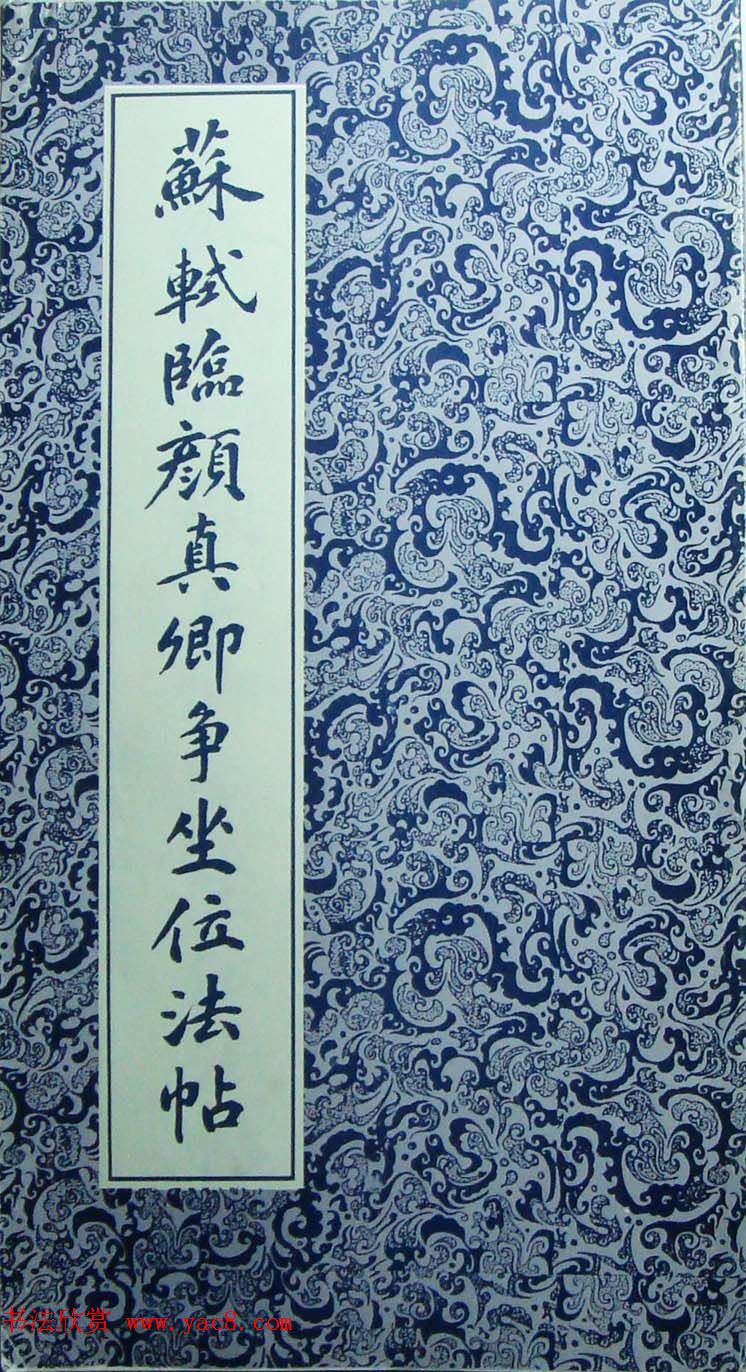 蘇軾臨顔真卿争坐位法帖
书法欣赏 www.yac8.com